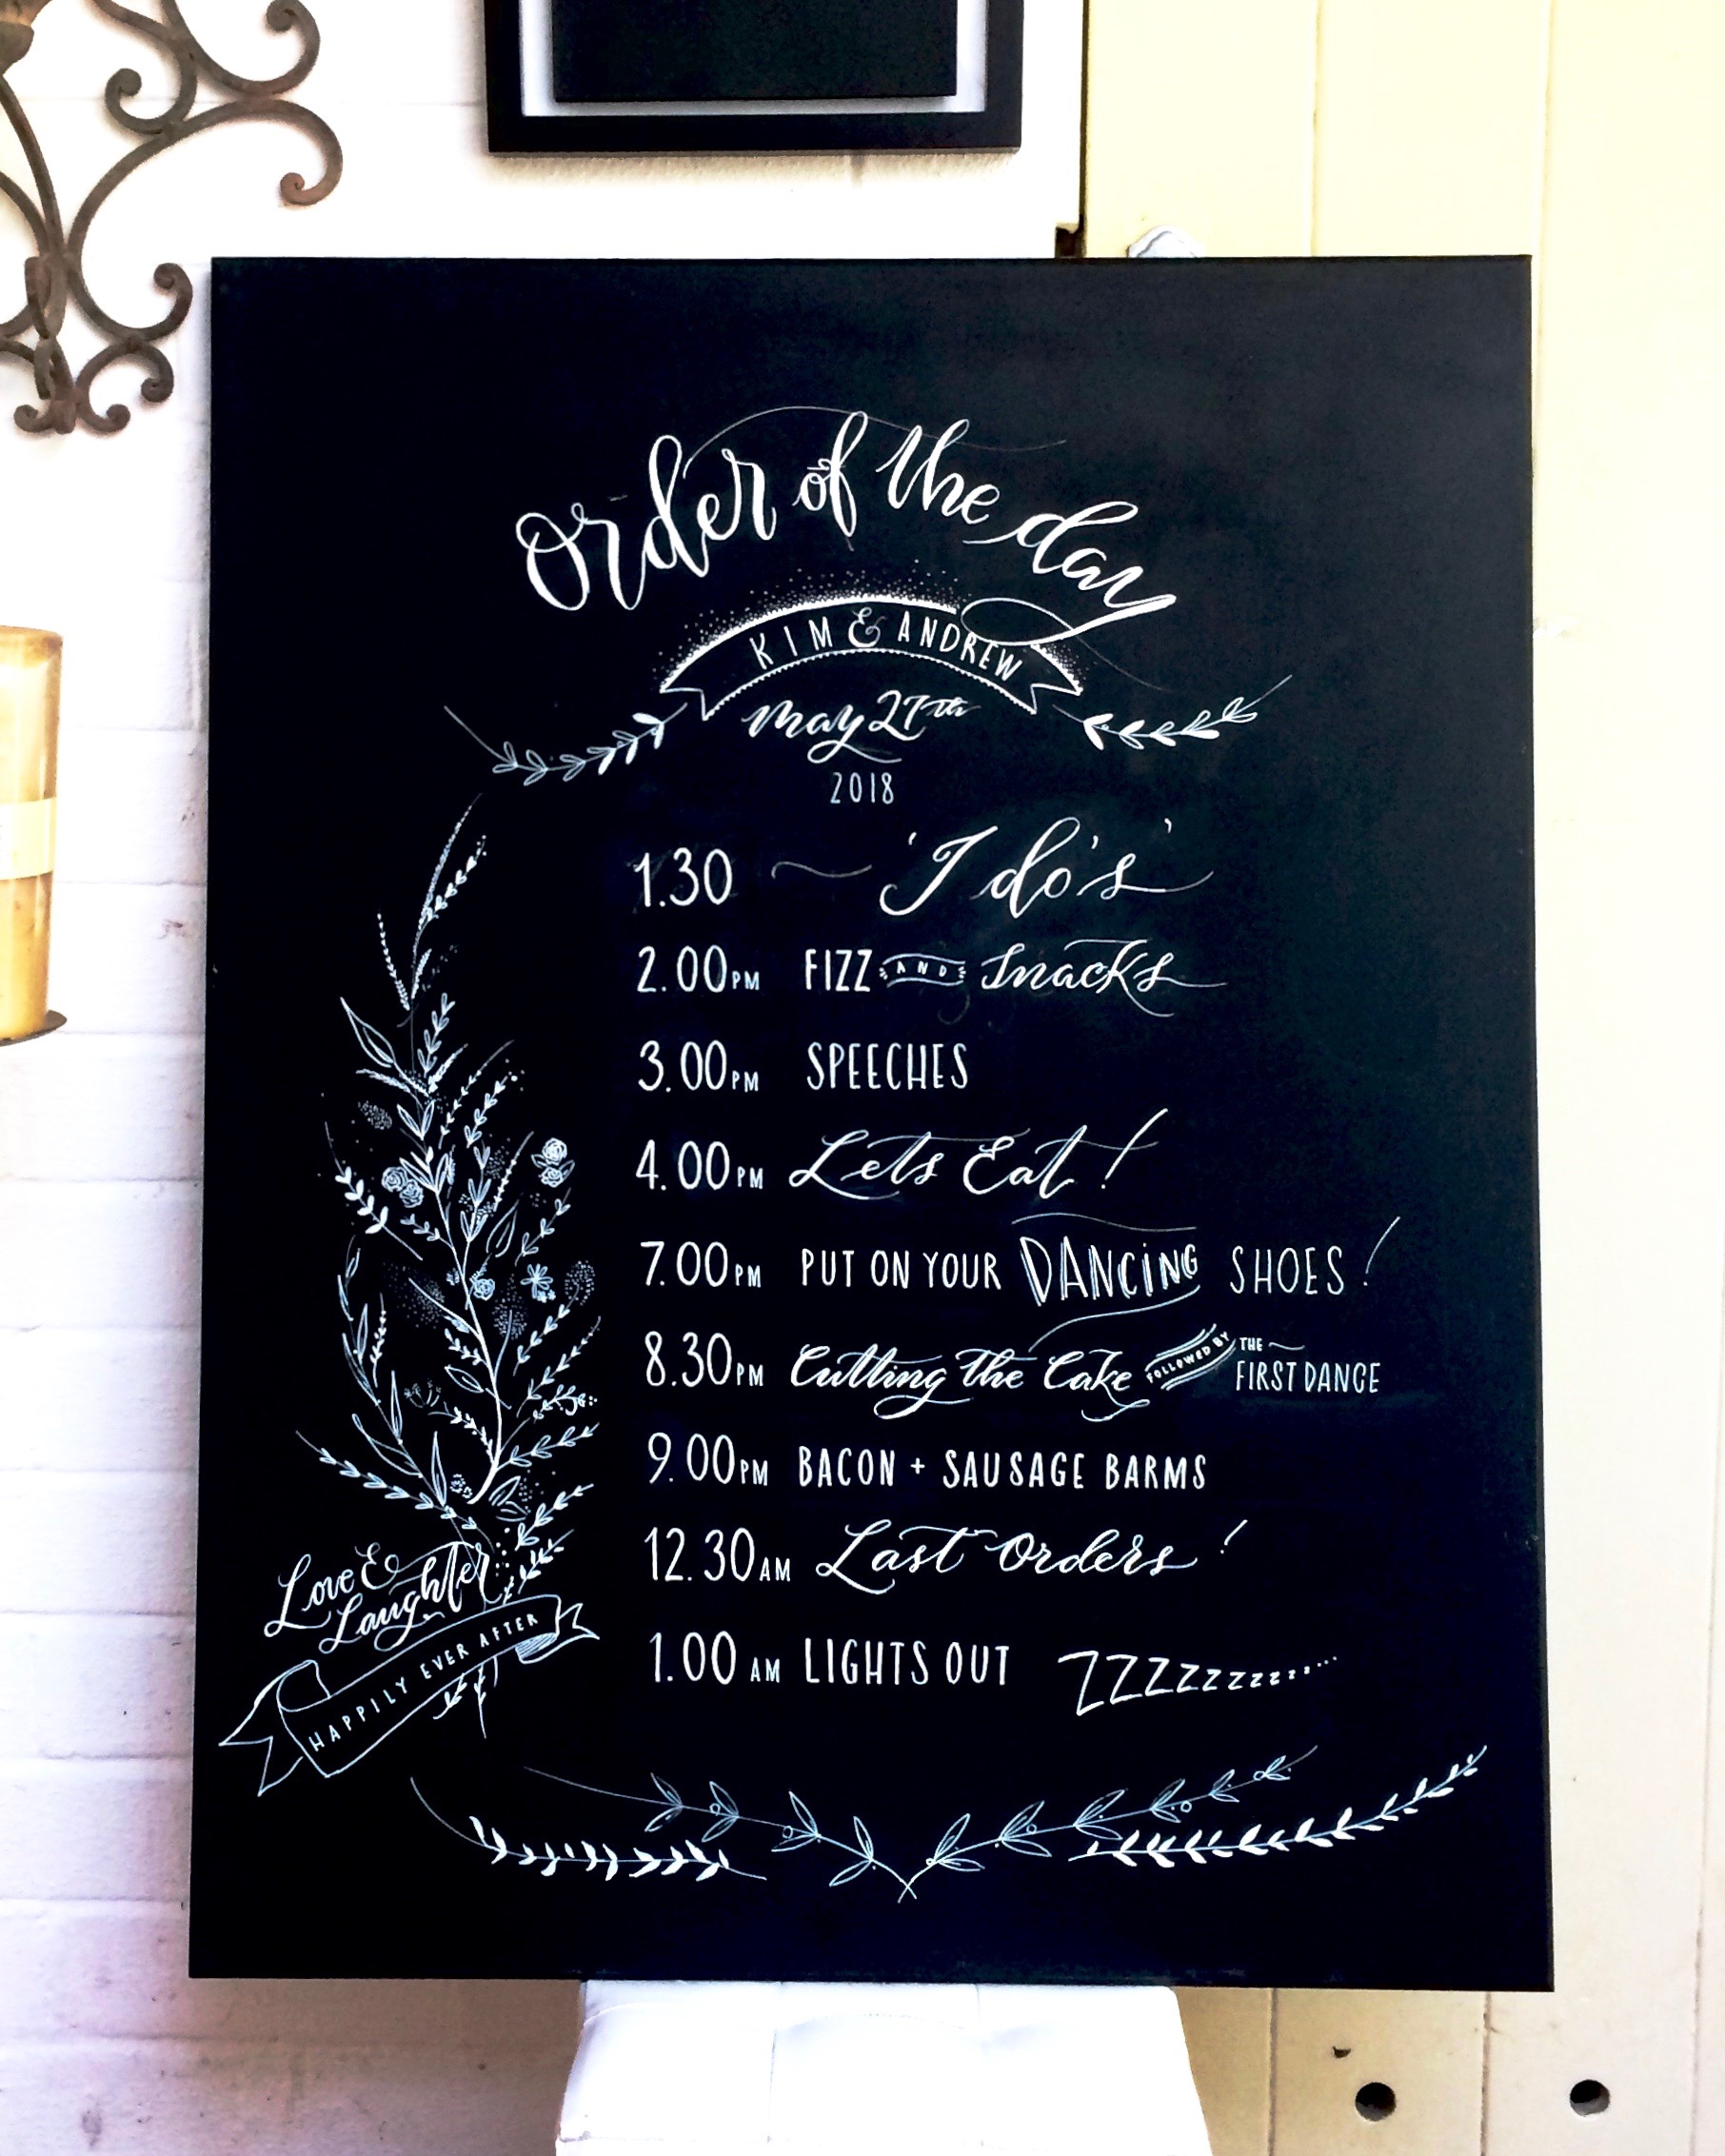 Order of the day
KIM & ANDREW
May 27th
2018
1.30 ~ 'I do's'
2.00PM FIZZ AND Snacks
3.00PM SPEECHES
4.00PM Lets Eat!
7.00PM PUT ON YOUR DANCING SHOES!
8.30PM Cutting the Cake FOLLOWED BY THE ~ FIRST DANCE
9.00PM BACON + SAUSAGE BARMS
12.30AM Last Orders!
1.00 AM LIGHTS OUT ZZZZzzzzzz.....
Love &
Laughter
HAPPILY EVER AFTER